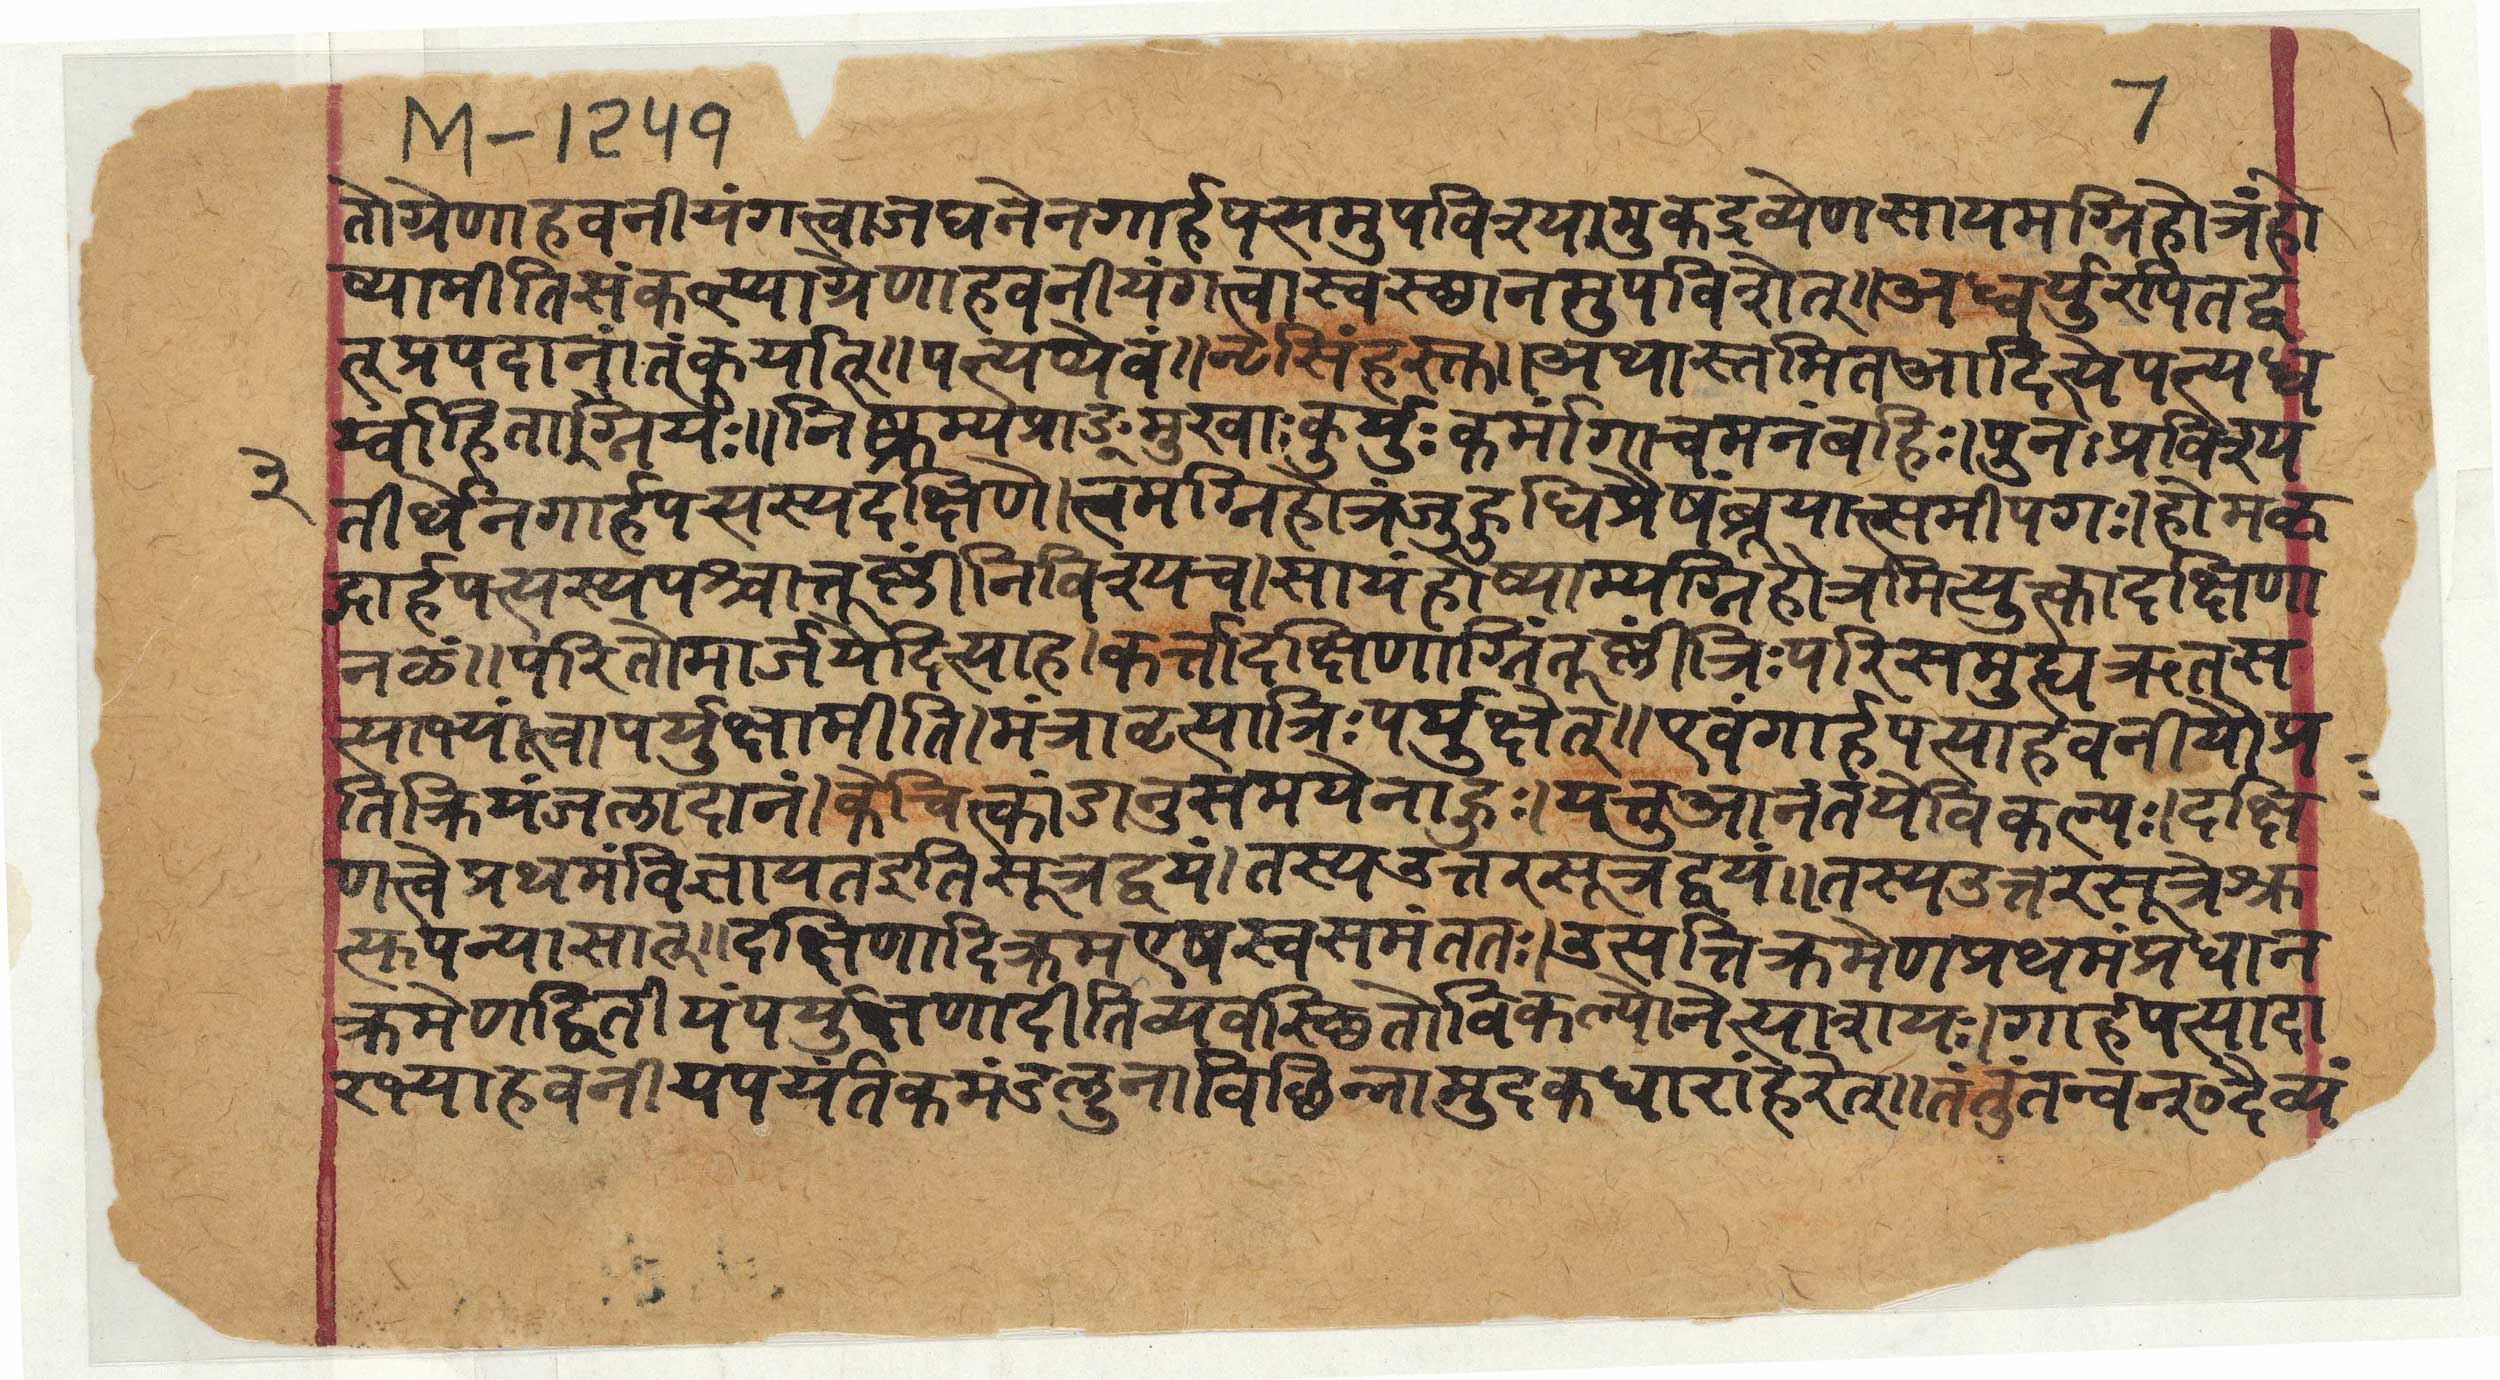 M-1249
7
तोग्रेणाहवनीयंगत्त्वाजघनेनगार्हपत्यमुपविश्यामुकद्रव्येणसायमग्निहोत्रंहो
ष्यामीतिसंकल्प्याग्रेणाहवनीयंगत्वास्वस्थानमुपविशेत्॥अध्वर्युरपितद्व
त्प्रपदानांतंकुर्यात्॥पत्न्यप्येवं॥नृसिंहस्तु॥अथास्तमितआदित्येपत्न्यध्व
र्य्वाहिताग्नियः॥निष्क्रम्यप्राङ्मुखाःकुर्युःकर्मांगाचमनंबहिः।पुनःप्रविश्य
३
तीर्थेनगार्हपत्यस्यदक्षिणे।त्वमग्निहोत्रंजुहुधिप्रैषंब्रूयात्समीपगः।होमकृ
द्गार्हपत्यस्यपश्चात्तूष्णींनिविश्यच।सायंहोष्याम्यग्निहोत्रमित्युत्क्वादक्षिणा
नळं॥परितोमार्जयेदित्याह।कर्त्तादक्षिणाग्निंतूष्णींत्रिःपरिसमुह्यऋतस
त्याभ्यांत्वापर्युक्षामीति।मंत्रावृत्यात्रिःपर्युक्षेत्॥एवंगार्हपत्याहवनीयौप्र
तिक्रियंजलादानं।केचित्कांडानुसमयेनाहुः।यत्तुआनंतर्येविकल्पः।दक्षि
णत्त्वेप्रथमंविज्ञायतइतिसूत्रद्वयं।तस्यउत्तरसूत्रद्वयं॥तस्यउत्तरसूत्रेश्रु
त्युपन्यासात्॥दक्षिणादिक्रमएषस्वसमंततः।उत्पत्तिक्रमेणप्रथमंप्रधान
क्रमेणद्वितीयंपर्युक्षणादीतिव्यवस्थितोविकल्पोनेत्याशयः।गार्हपत्यादा
रभ्याहवनीयपर्यंतंकमंडलुनाविछिन्नामुदकधारांहरेत्॥तंतुंतन्वन्०दैव्यं